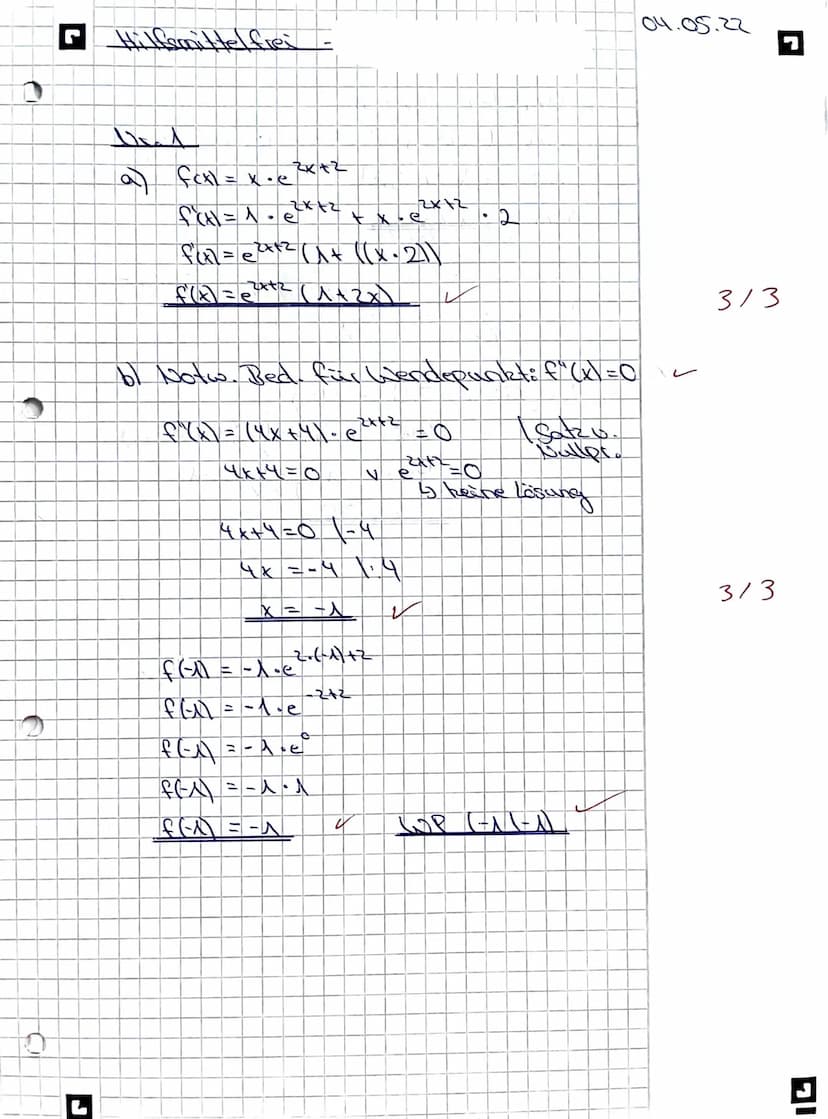 04.05.22
Hilfsmittelfrei -
Nr. 1
a) f(x) = x · e^2x+2
f'(x) = 1 · e^2x+2 + x · e^2x+2 · 2
f'(x) = e^2x+2 (1+ ((x · 2))
f'(x) = e^2x+2 (1+2x) ✓
3/3
b) Notw. Bed. für Wendepunkt: f''(x)=0 ✓
f''(x) = (4x+4) · e^2x+2 = 0 | Satz v. Nullpr.
4x+4=0 v e^2x+2=0
↳ keine Lösung
4x+4=0 |-4
4x = -4 |:4
x = -1 ✓
3/3
f(-1) = -1 · e^2·(-1)+2
f(-1) = -1 · e^-2+2
f(-1) = -1 · e^0
f(-1) = -1 · 1
f(-1) = -1 ✓ WP (-1|-1) ✓